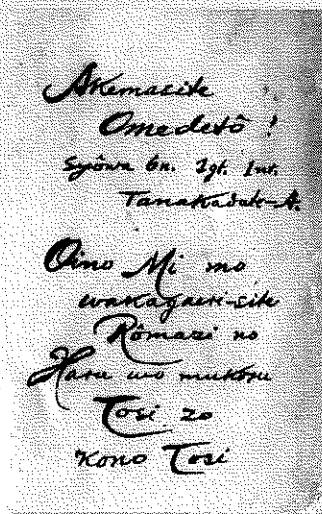 Akemasite
Omedetô !
Syôwa 6n. 1gt. 1nt.
Tanakadate-A.
Oino Mi mo
wakagaeri-site
Rômazi no
Haru wo mukôru
Tosi zo
Kono Tosi